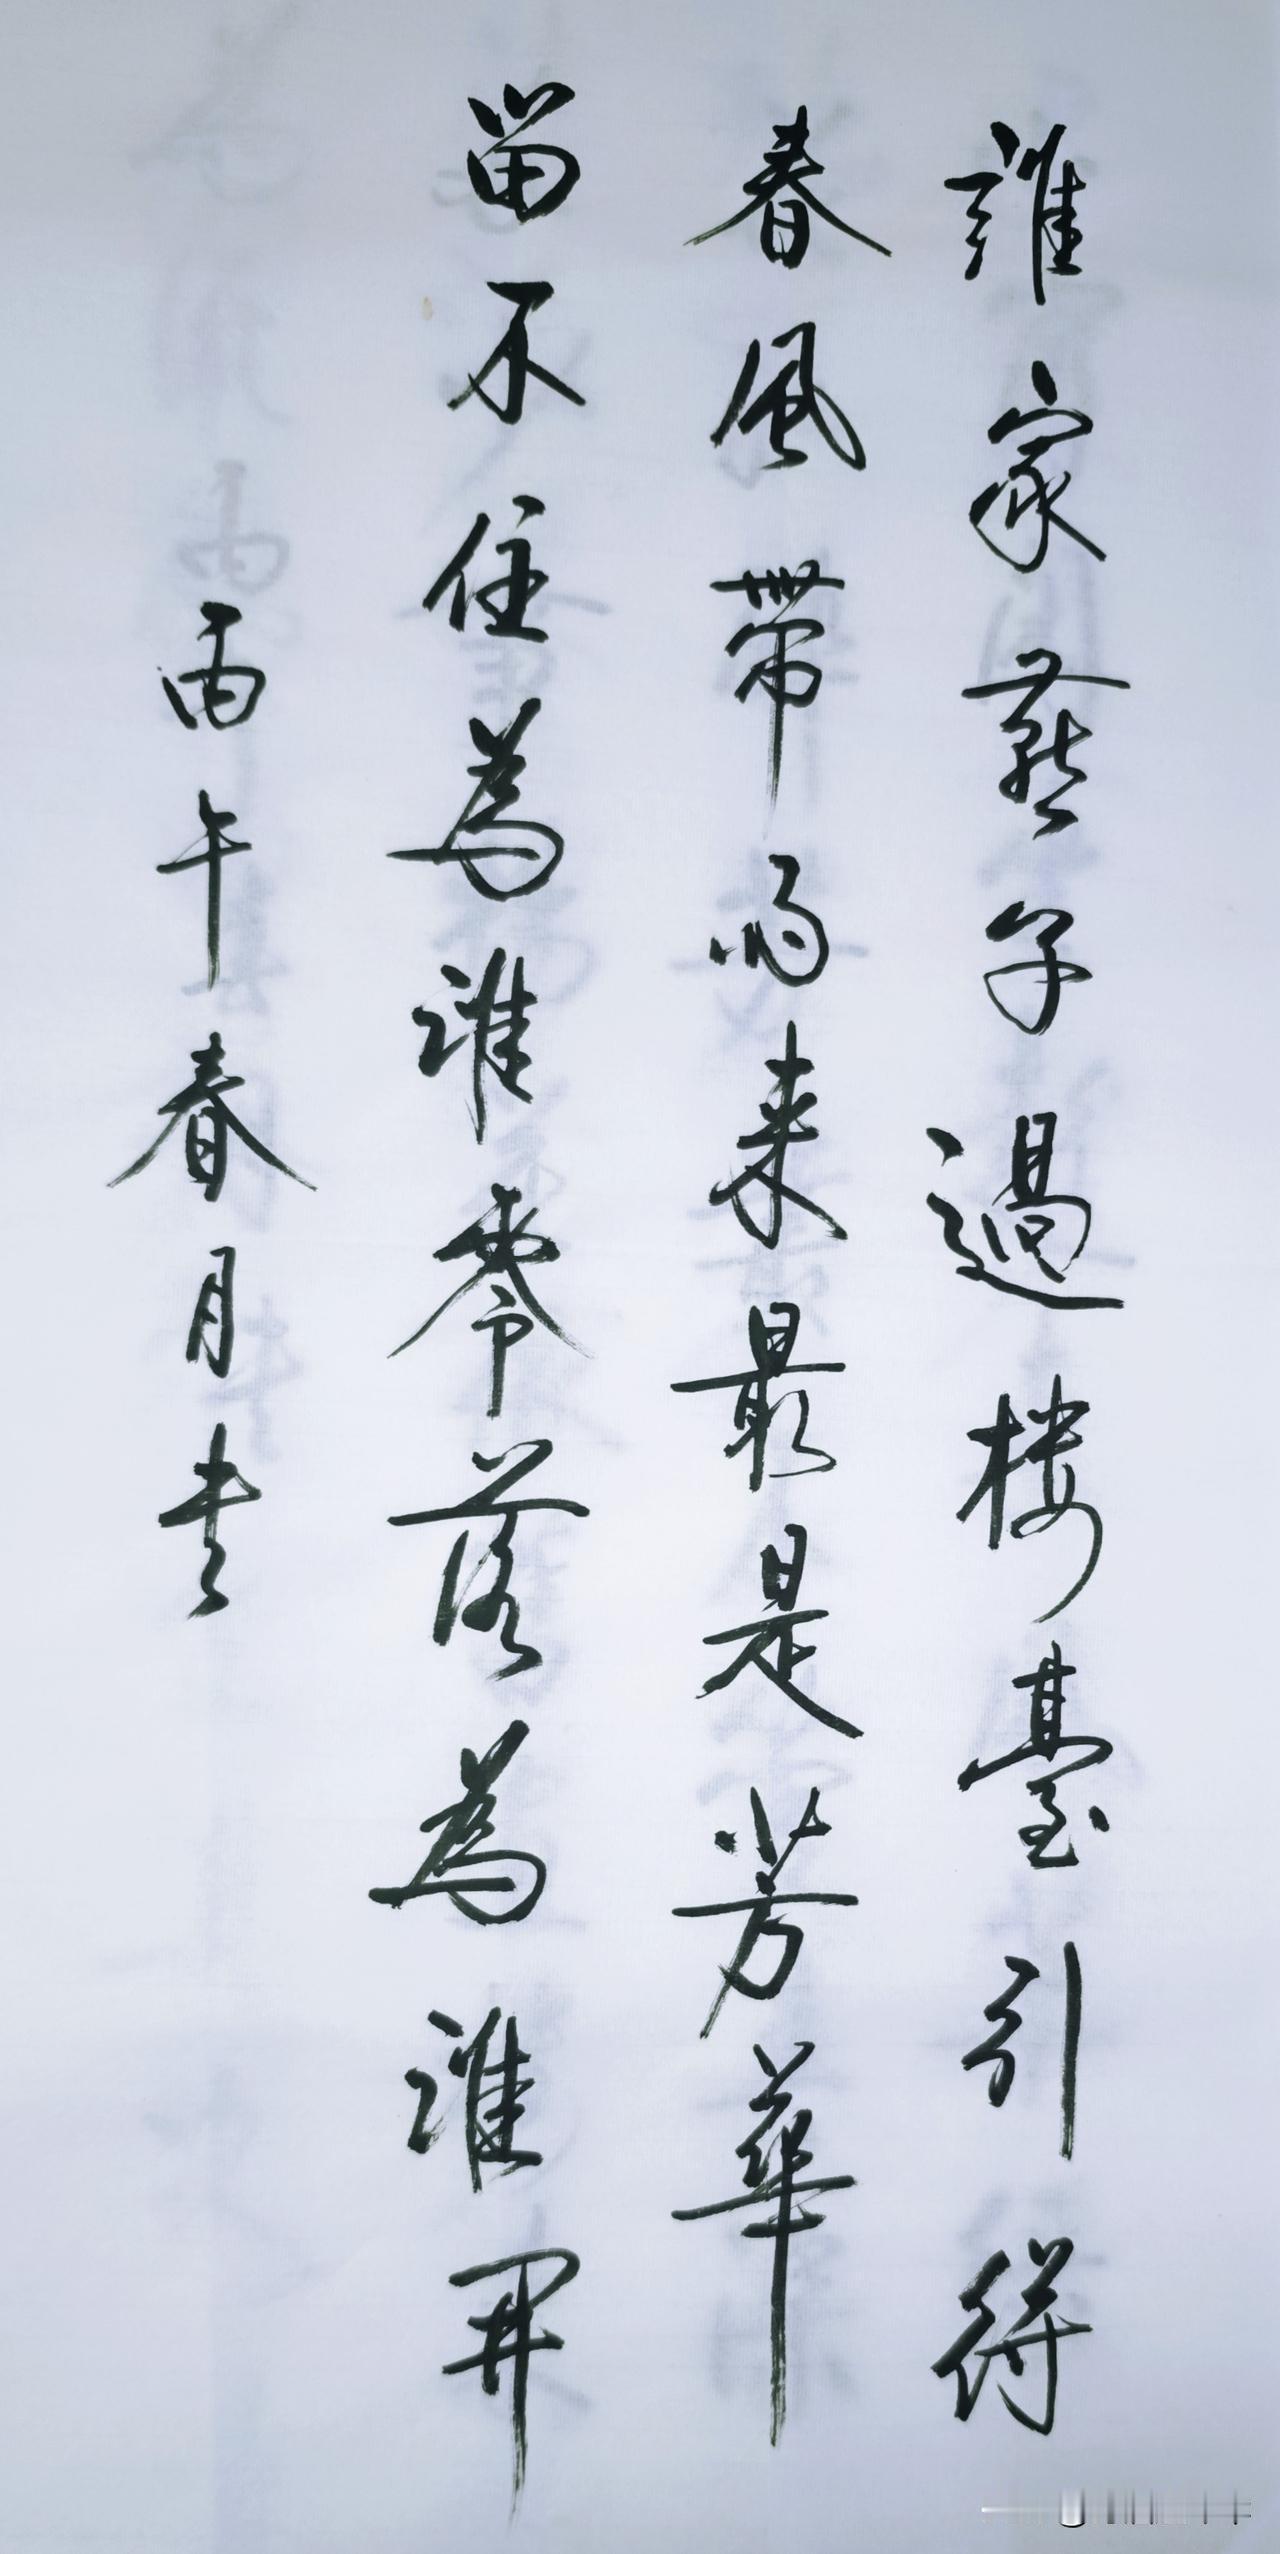 誰家燕子過楼臺引得
春風帶雨来最是芳華
留不住為誰零落為誰開
丙午春月书